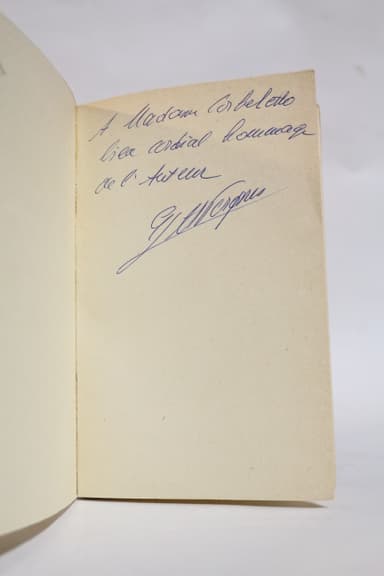 A Madame Corbeletto
bien cordial hommage
de l'Auteur